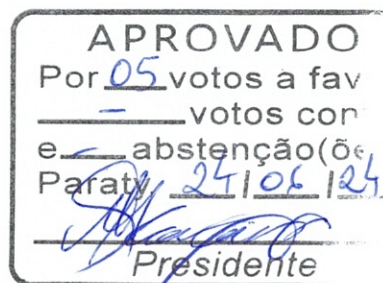 APROVADO
Por 05 votos a fav
- votos con
e abstenção(õe
Paraty, 24/06/24
Presidente